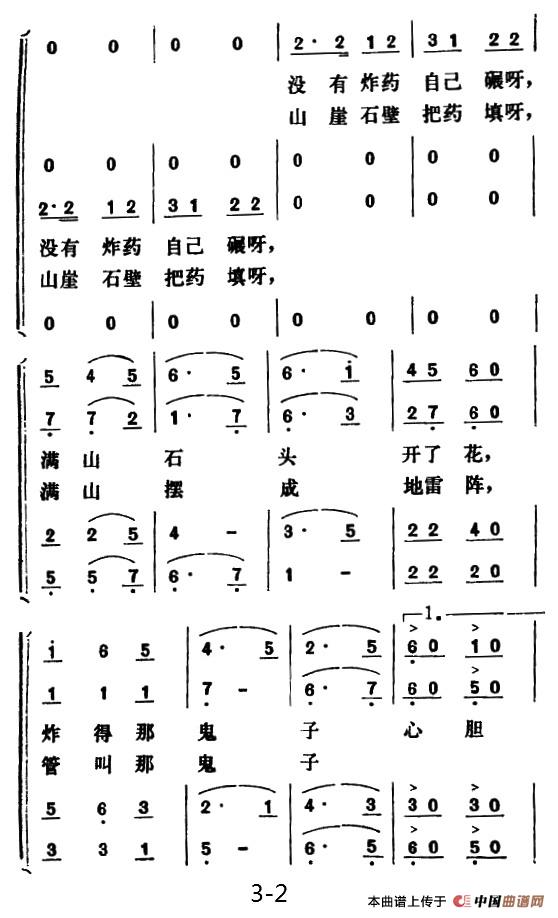 0 0 | 0 0 | 2· 2 1 2 | 3 1 2 2
没 有 炸药 自己 碾呀,
山 崖 石壁 把药 填呀,
0 0 | 0 0 | 0 0 | 0 0
2· 2 1 2 | 3 1 2 2 | 0 0 | 0 0
没有 炸药 自己 碾呀,
山崖 石壁 把药 填呀,
0 0 | 0 0 | 0 0 | 0 0
5 4 5 | 6· 5 | 6· i | 4 5 6 0
7 7 2 | 1· 7 | 6· 3 | 2 7 6 0
满 山 石 头 开了 花,
满 山 摆 成 地雷 阵,
2 2 5 | 4 - | 3· 5 | 2 2 4 0
5 5 7 | 6· 7 | 1 - | 2 2 2 0
1.
i 6 5 | 4· 5 | 2· 5 | 6 0 1 0
1 1 1 | 7 - | 6· 7 | 6 0 5 0
炸 得 那 鬼 子 心 胆
管 叫 那 鬼 子
5 6 3 | 2· 1 | 4· 3 | 3 0 3 0
3 3 1 | 5 - | 6· 5 | 3 0 5 0
3-2
本曲谱上传于 中国曲谱网